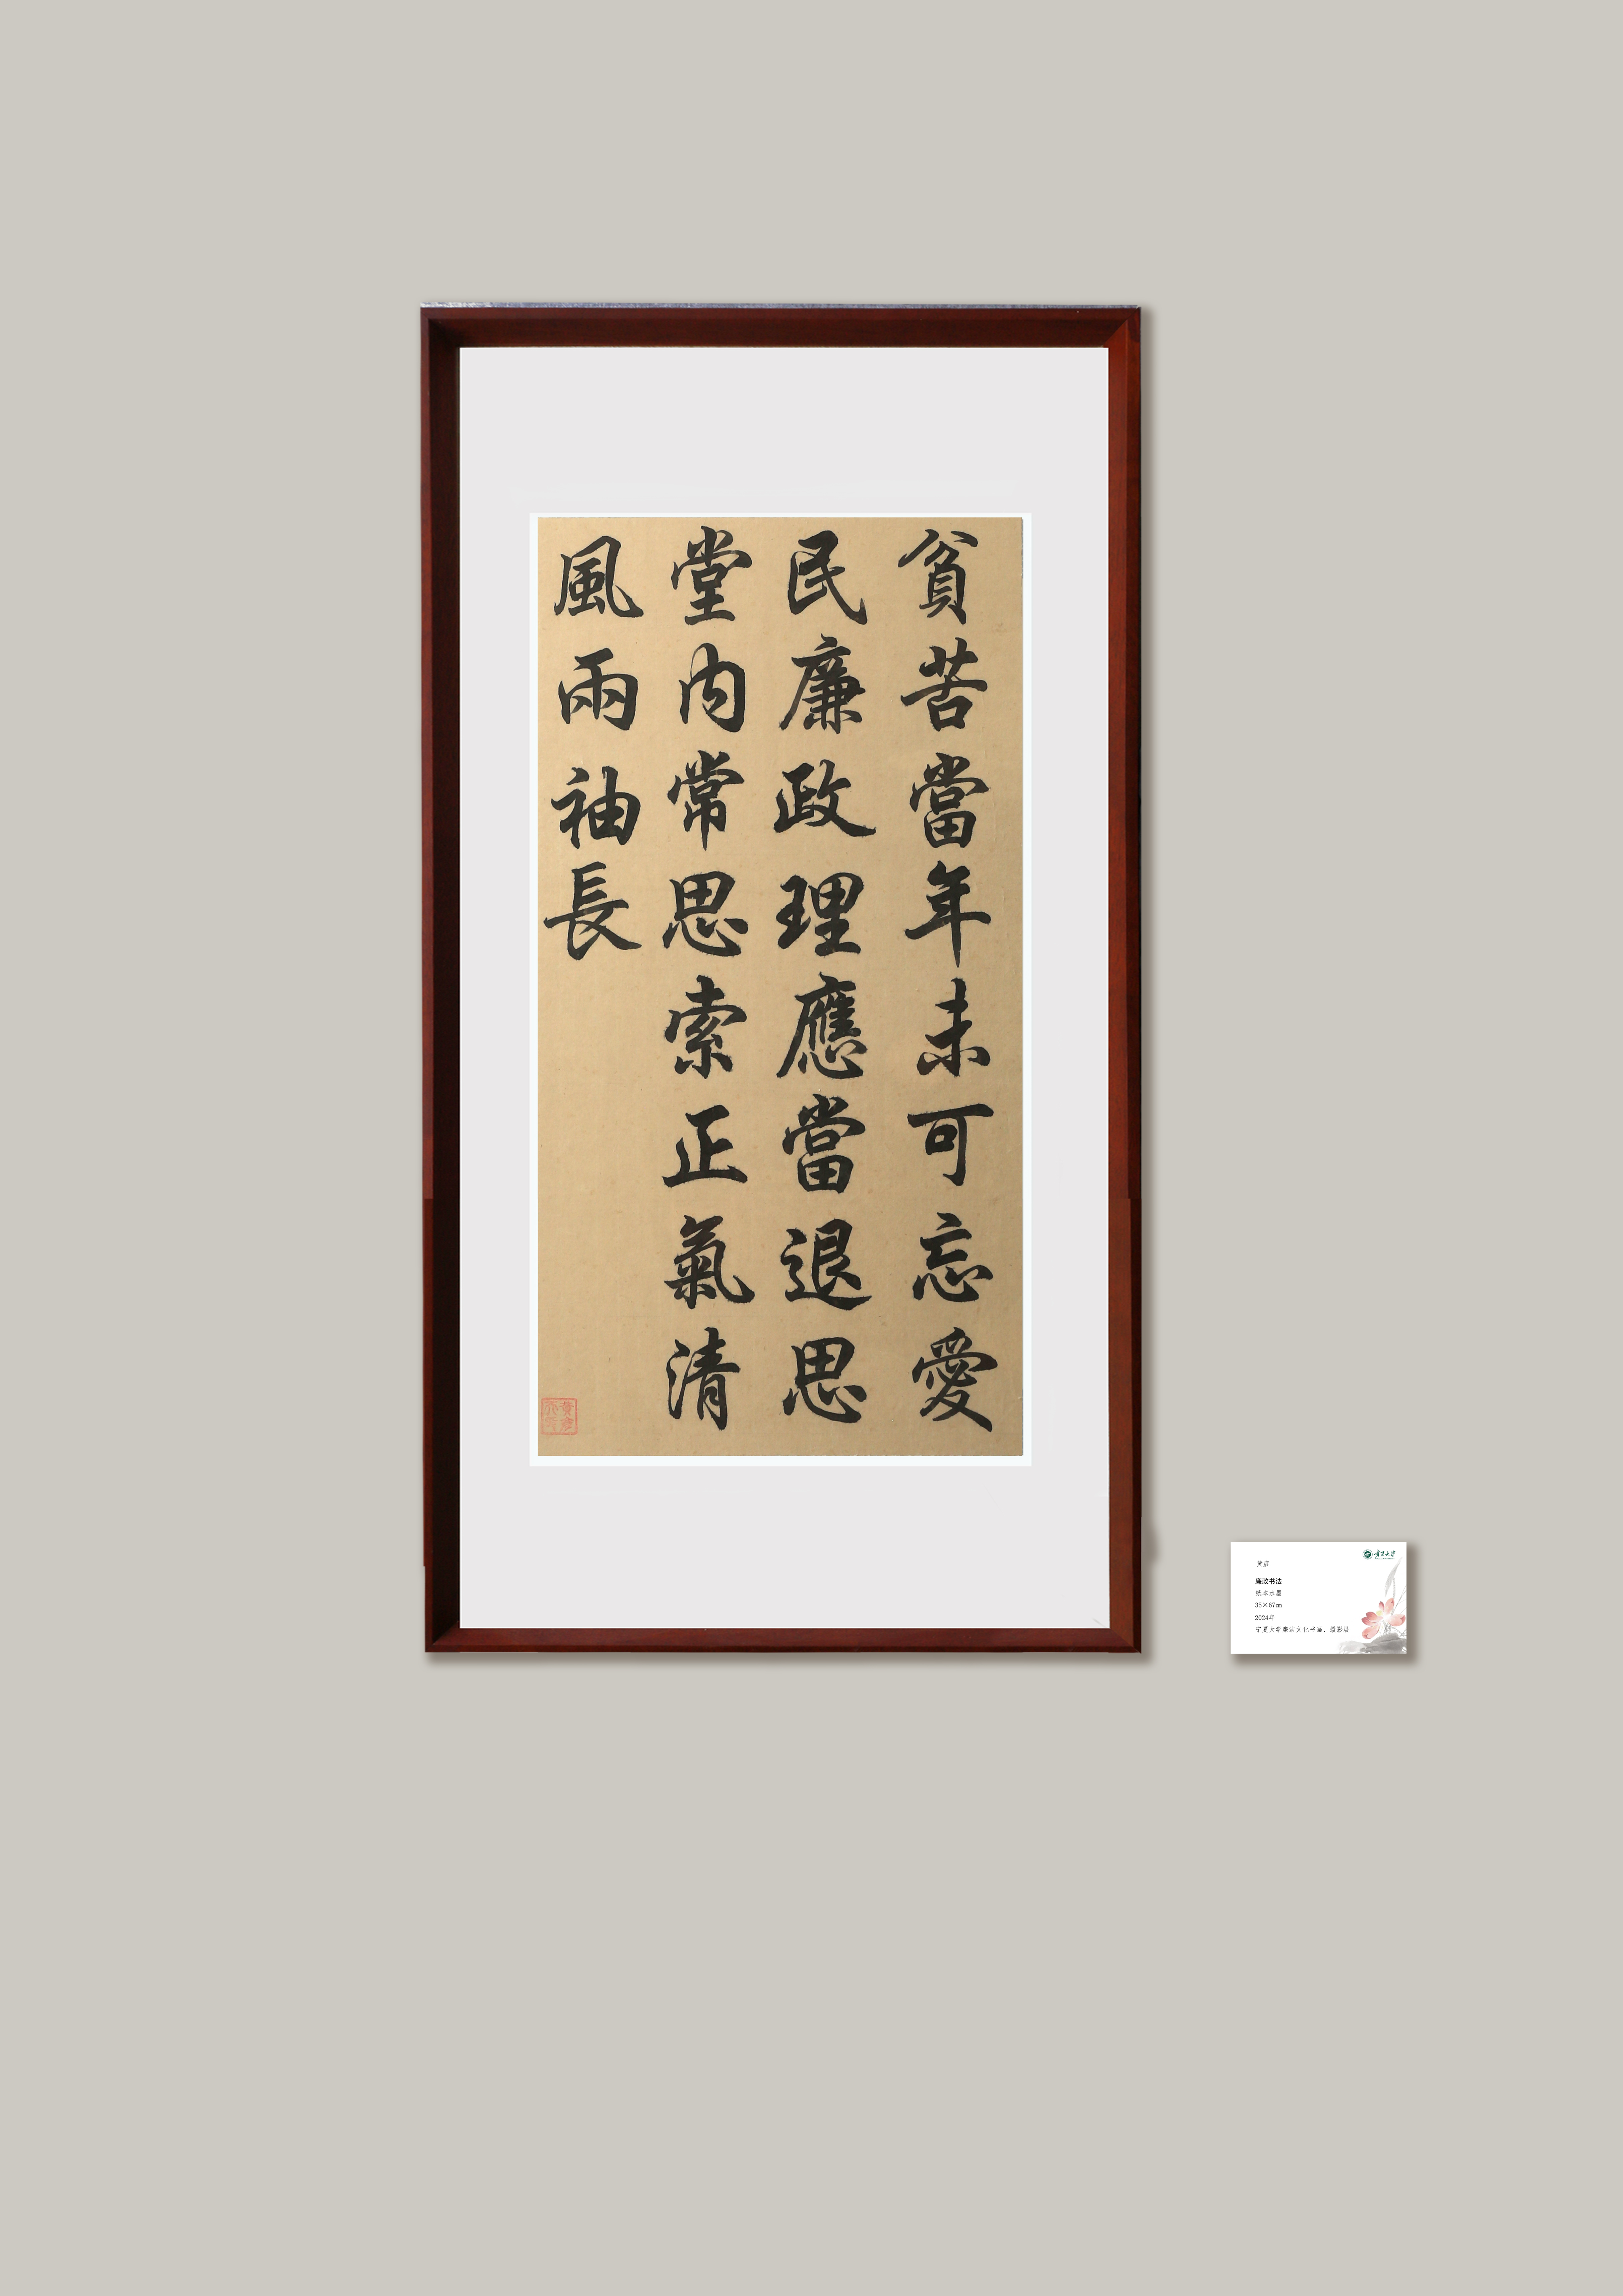 貧苦當年未可忘愛
民廉政理應當退思
堂内常思索正氣清
風兩袖長
黄彦
宁夏大学
廉政书法
纸本水墨
35×67cm
2024年
宁夏大学廉洁文化书画、摄影展